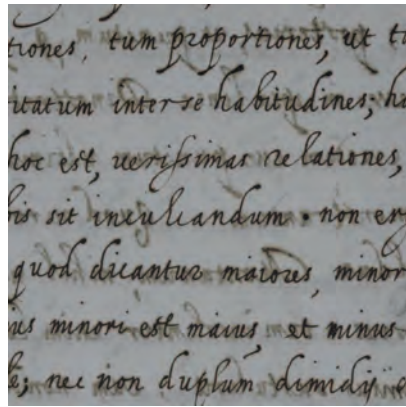 tiones, tum proportiones, ut t
itatum inter se habitudines; h
hoc est, verissimas relationes,
bis sit inculcandum. non er
quod dicantur maiores, minor
us minori est maius, et minus
le; nec non duplum dimidij e